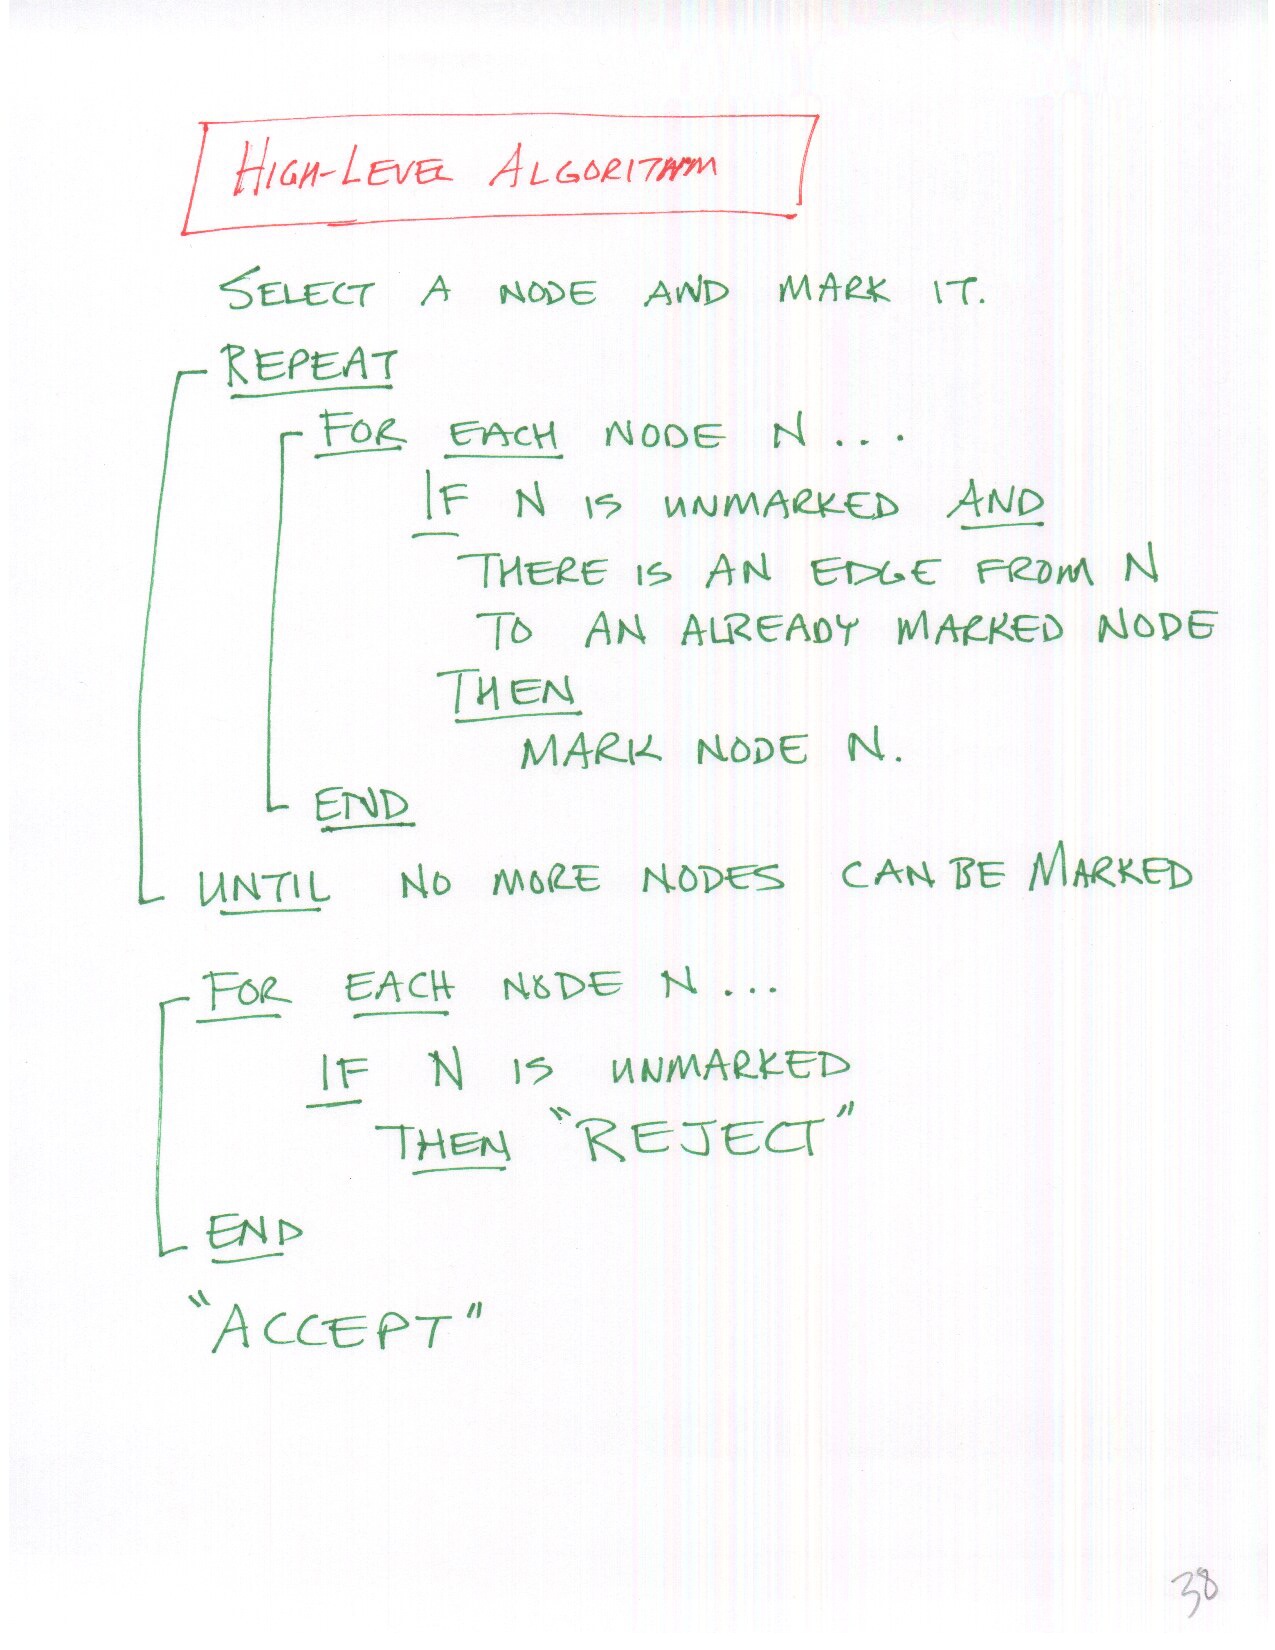 HIGH-LEVEL ALGORITHM
SELECT A NODE AND MARK IT.
REPEAT
FOR EACH NODE N...
IF N IS UNMARKED AND
THERE IS AN EDGE FROM N
TO AN ALREADY MARKED NODE
THEN
MARK NODE N.
END
UNTIL NO MORE NODES CAN BE MARKED
FOR EACH NODE N...
IF N IS UNMARKED
THEN "REJECT"
END
"ACCEPT"
38